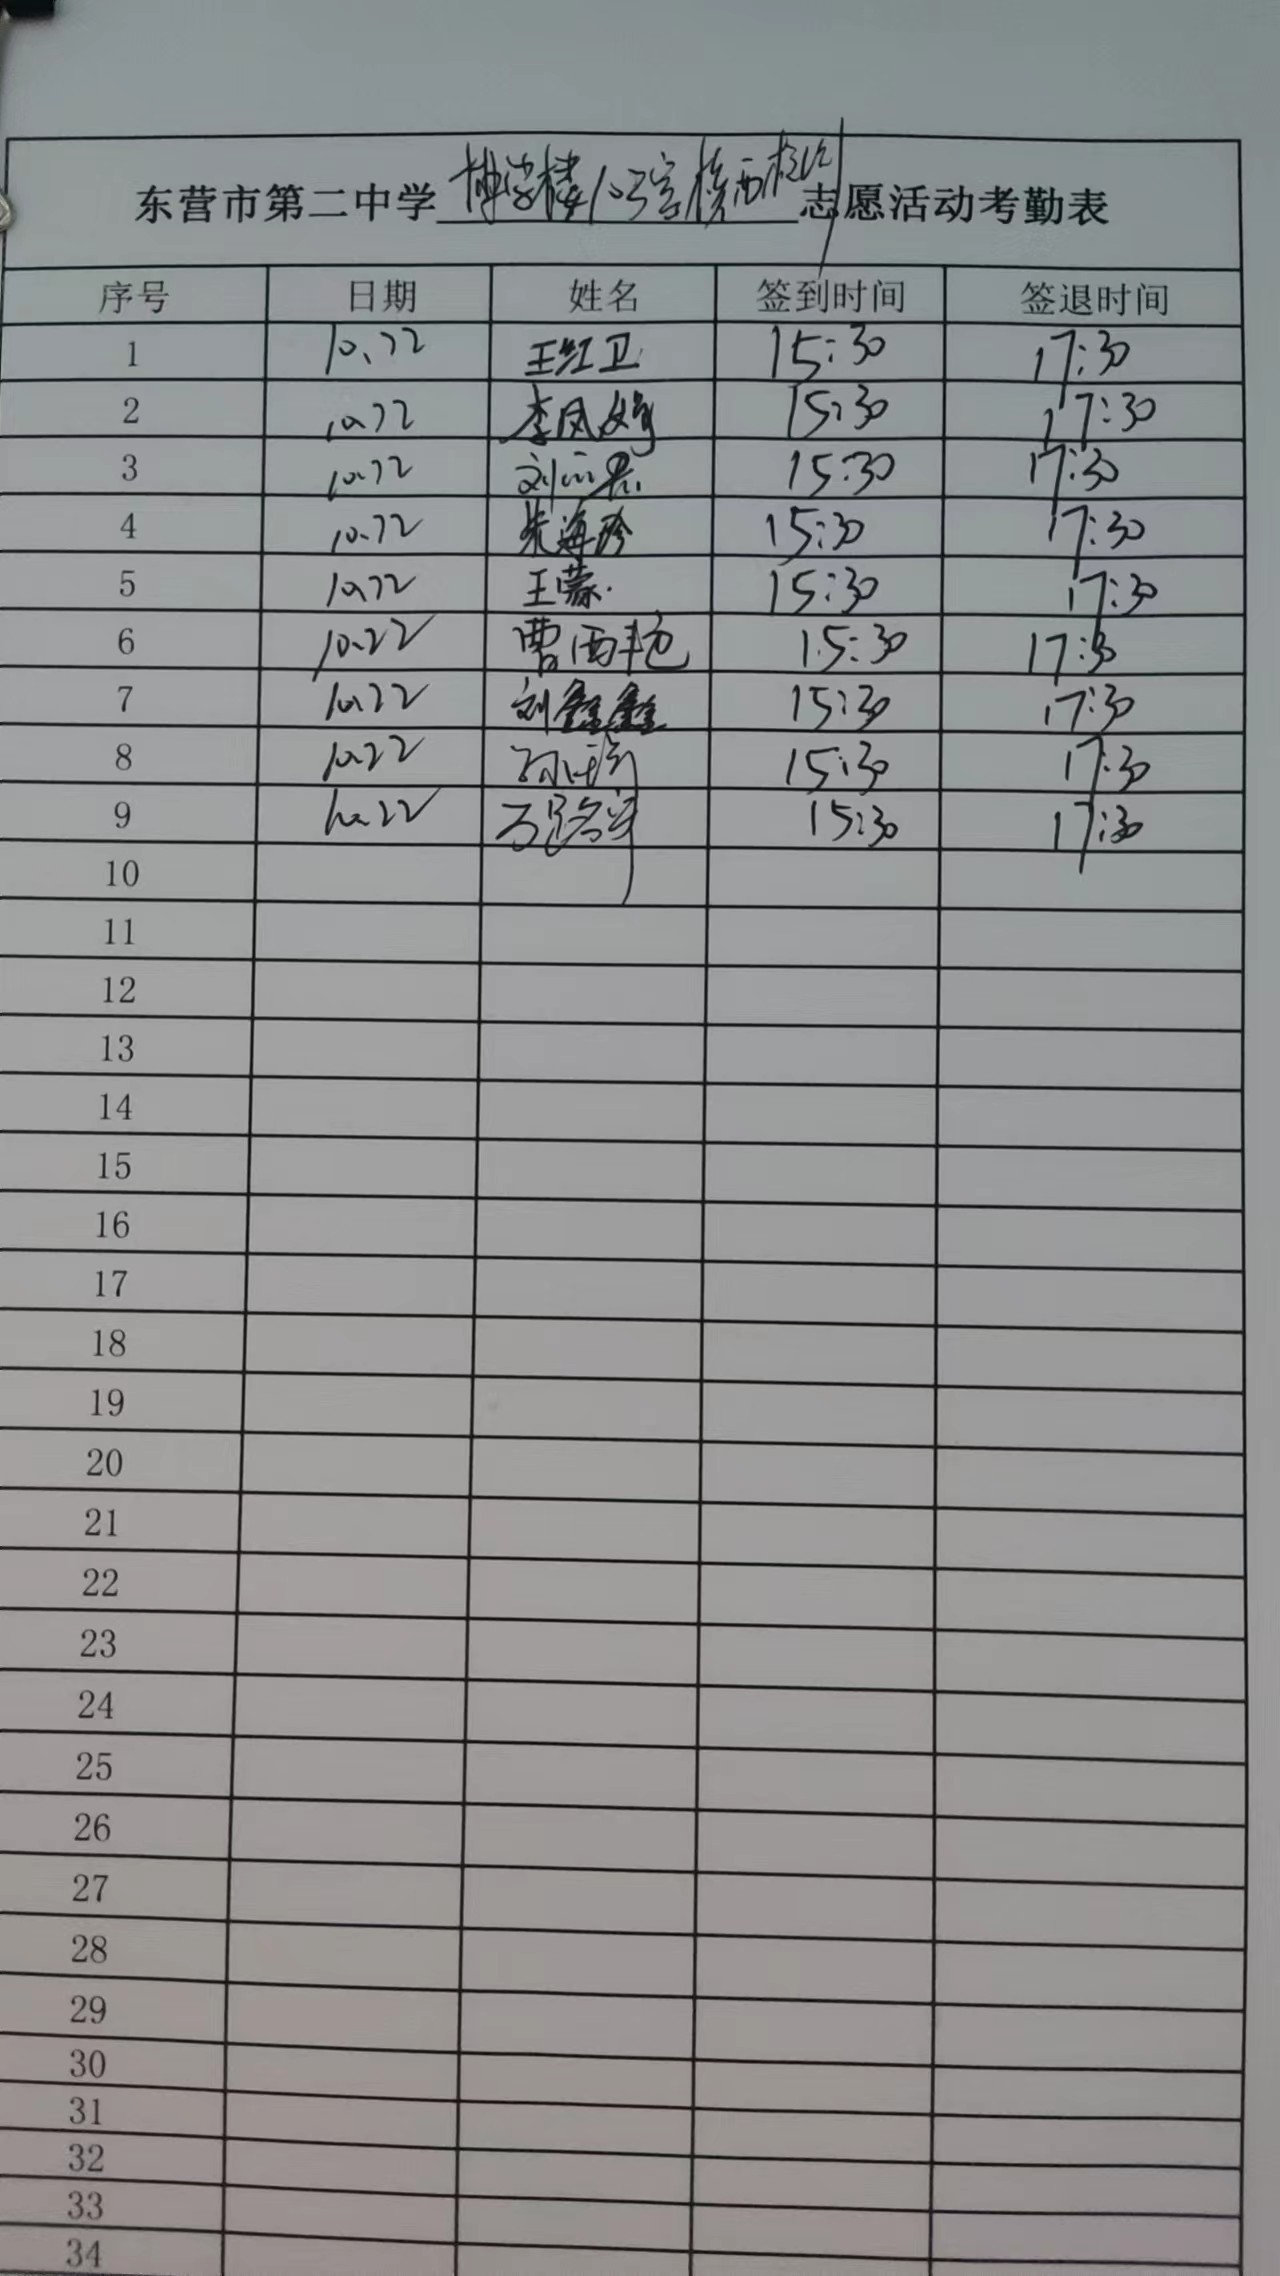 东营市第二中学博学楼 志愿活动考勤表
序号 日期 姓名 签到时间 签退时间
1 10.22 王红卫 15:30 17:30
2 10.22 李凤娟 15:30 17:30
3 10.22 刘 15:30 17:30
4 10.22 朱海玲 15:30 17:30
5 10.22 王蒙 15:30 17:30
6 10.22 曹西艳 15:30 17:30
7 10.22 刘鑫鑫 15:30 17:30
8 10.22 孙 15:30 17:30
9 10.22 15:30 17:30
10
11
12
13
14
15
16
17
18
19
20
21
22
23
24
25
26
27
28
29
30
31
32
33
34